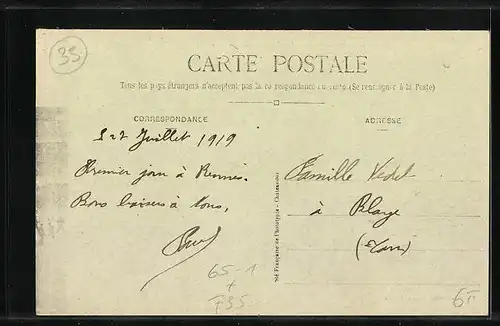 35
CARTE POSTALE
Tous les pays étrangers n'acceptent pas la correspondance au recto (Se renseigner à la Poste)
CORRESPONDANCE
ADRESSE
Juillet 1919
Premier jour à Rennes.
Bons baisers à tous,
Famille
à Blaye
(Tarn)
Sté Française de Phototypie - Châteaudun
65-1
+
F35